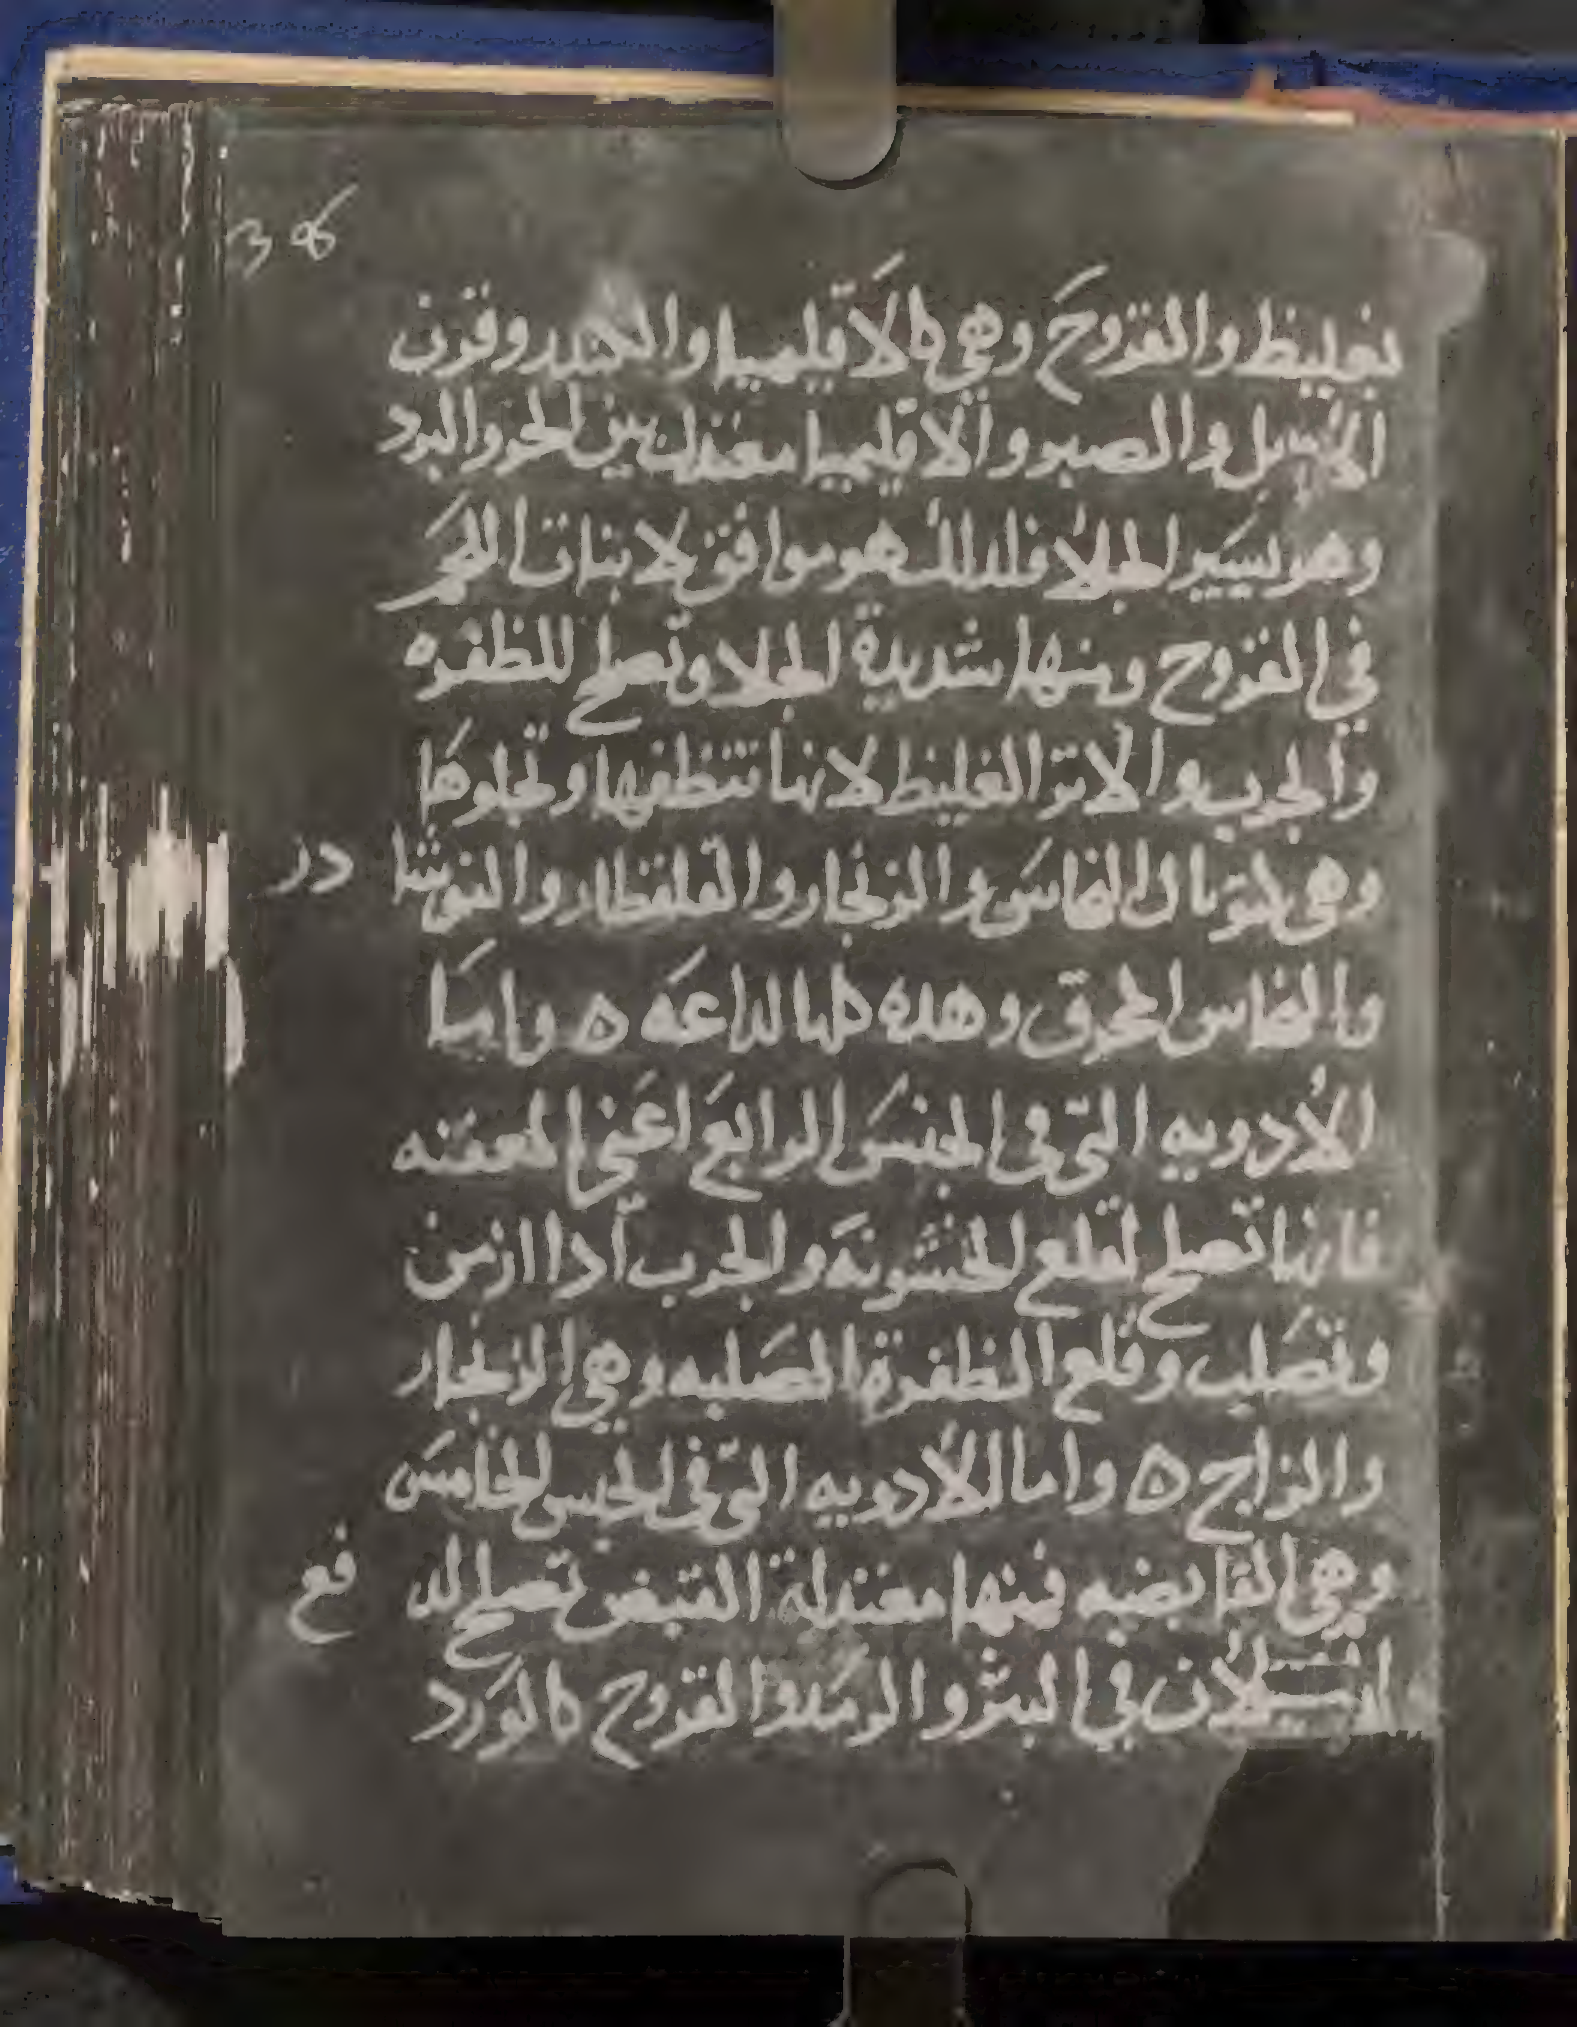 36
بغليظ والقروح وهي كالاقليميا والكندر وقرن
الايل والصبر والاقليميا معتدل بين الحر والبرد
وهو يسير الجلا فلذلك هو موافق لابنات اللحم
في القروح ومنها شديدة الجلا وتصلح للظفره
والجرب والاثر الغليظ لانها تنظفها وتجلوها
وهي كتوبال النحاس والزنجار والقلقطار والنوشا در
والنحاس المحرق وهذه كلها لداعه ه واما
الادويه التي في الجنس الرابع اعني المعفنه
فانها تصلح لقلع الخشونه والجرب اذا ازمن
وتصلب وقلع الظفرة الصلبه وهي الزنجار
والزاج ه واما الادويه التي في الجنس الخامس
وهي القابضه فمنها معتدلة القبض تصلح لد فع
السيلان في البثر والرمد والقروح كالورد